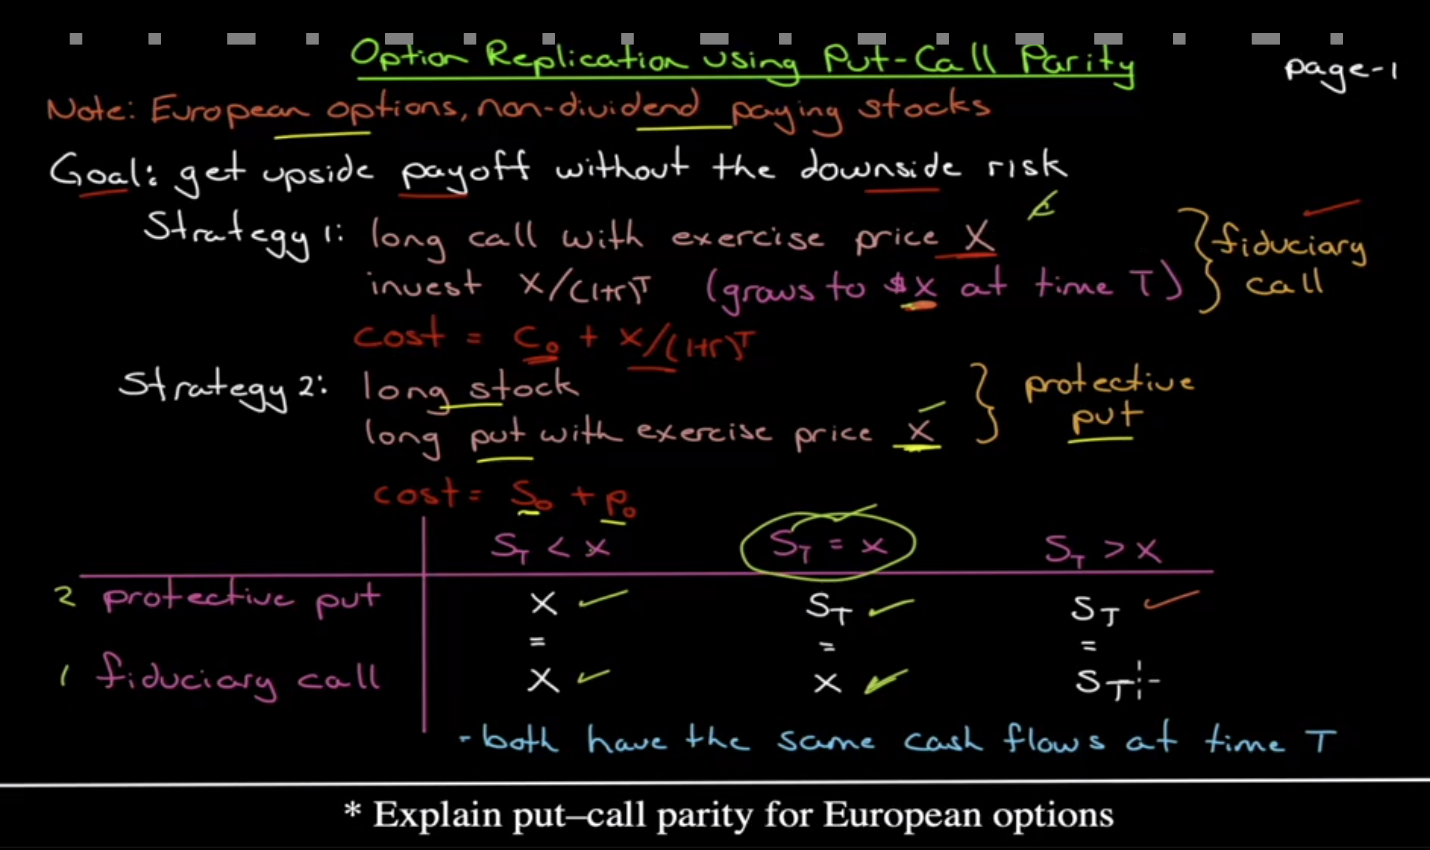 Option Replication using Put-Call Parity
page-1
Note: European options, non-dividend paying stocks
Goal: get upside payoff without the downside risk
Strategy 1: long call with exercise price X
invest X/(1+r)^T (grows to $X at time T)
fiduciary call
cost = C₀ + X/(1+r)^T
Strategy 2: long stock
long put with exercise price X
protective put
cost = S₀ + P₀
S_T < X S_T = X S_T > X
2 protective put X S_T S_T
= = =
1 fiduciary call X X S_T
- both have the same cash flows at time T
* Explain put–call parity for European options